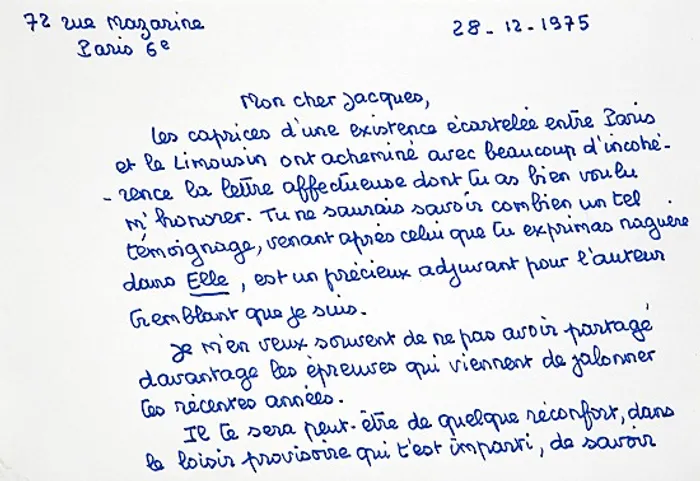 72 rue Mazarine
Paris 6e
28-12-1975
Mon cher Jacques,
Les caprices d'une existence écartelée entre Paris
et le Limousin ont acheminé avec beaucoup d'incohé-
-rence la lettre affectueuse dont tu as bien voulu
m'honorer. Tu ne saurais savoir combien un tel
témoignage, venant après celui que tu exprimas naguère
dans Elle, est un précieux adjuvant pour l'auteur
tremblant que je suis.
Je m'en veux souvent de ne pas avoir partagé
davantage les épreuves qui viennent de jalonner
tes récentes années.
Il te sera peut-être de quelque réconfort, dans
le loisir provisoire qui t'est imparti, de savoir